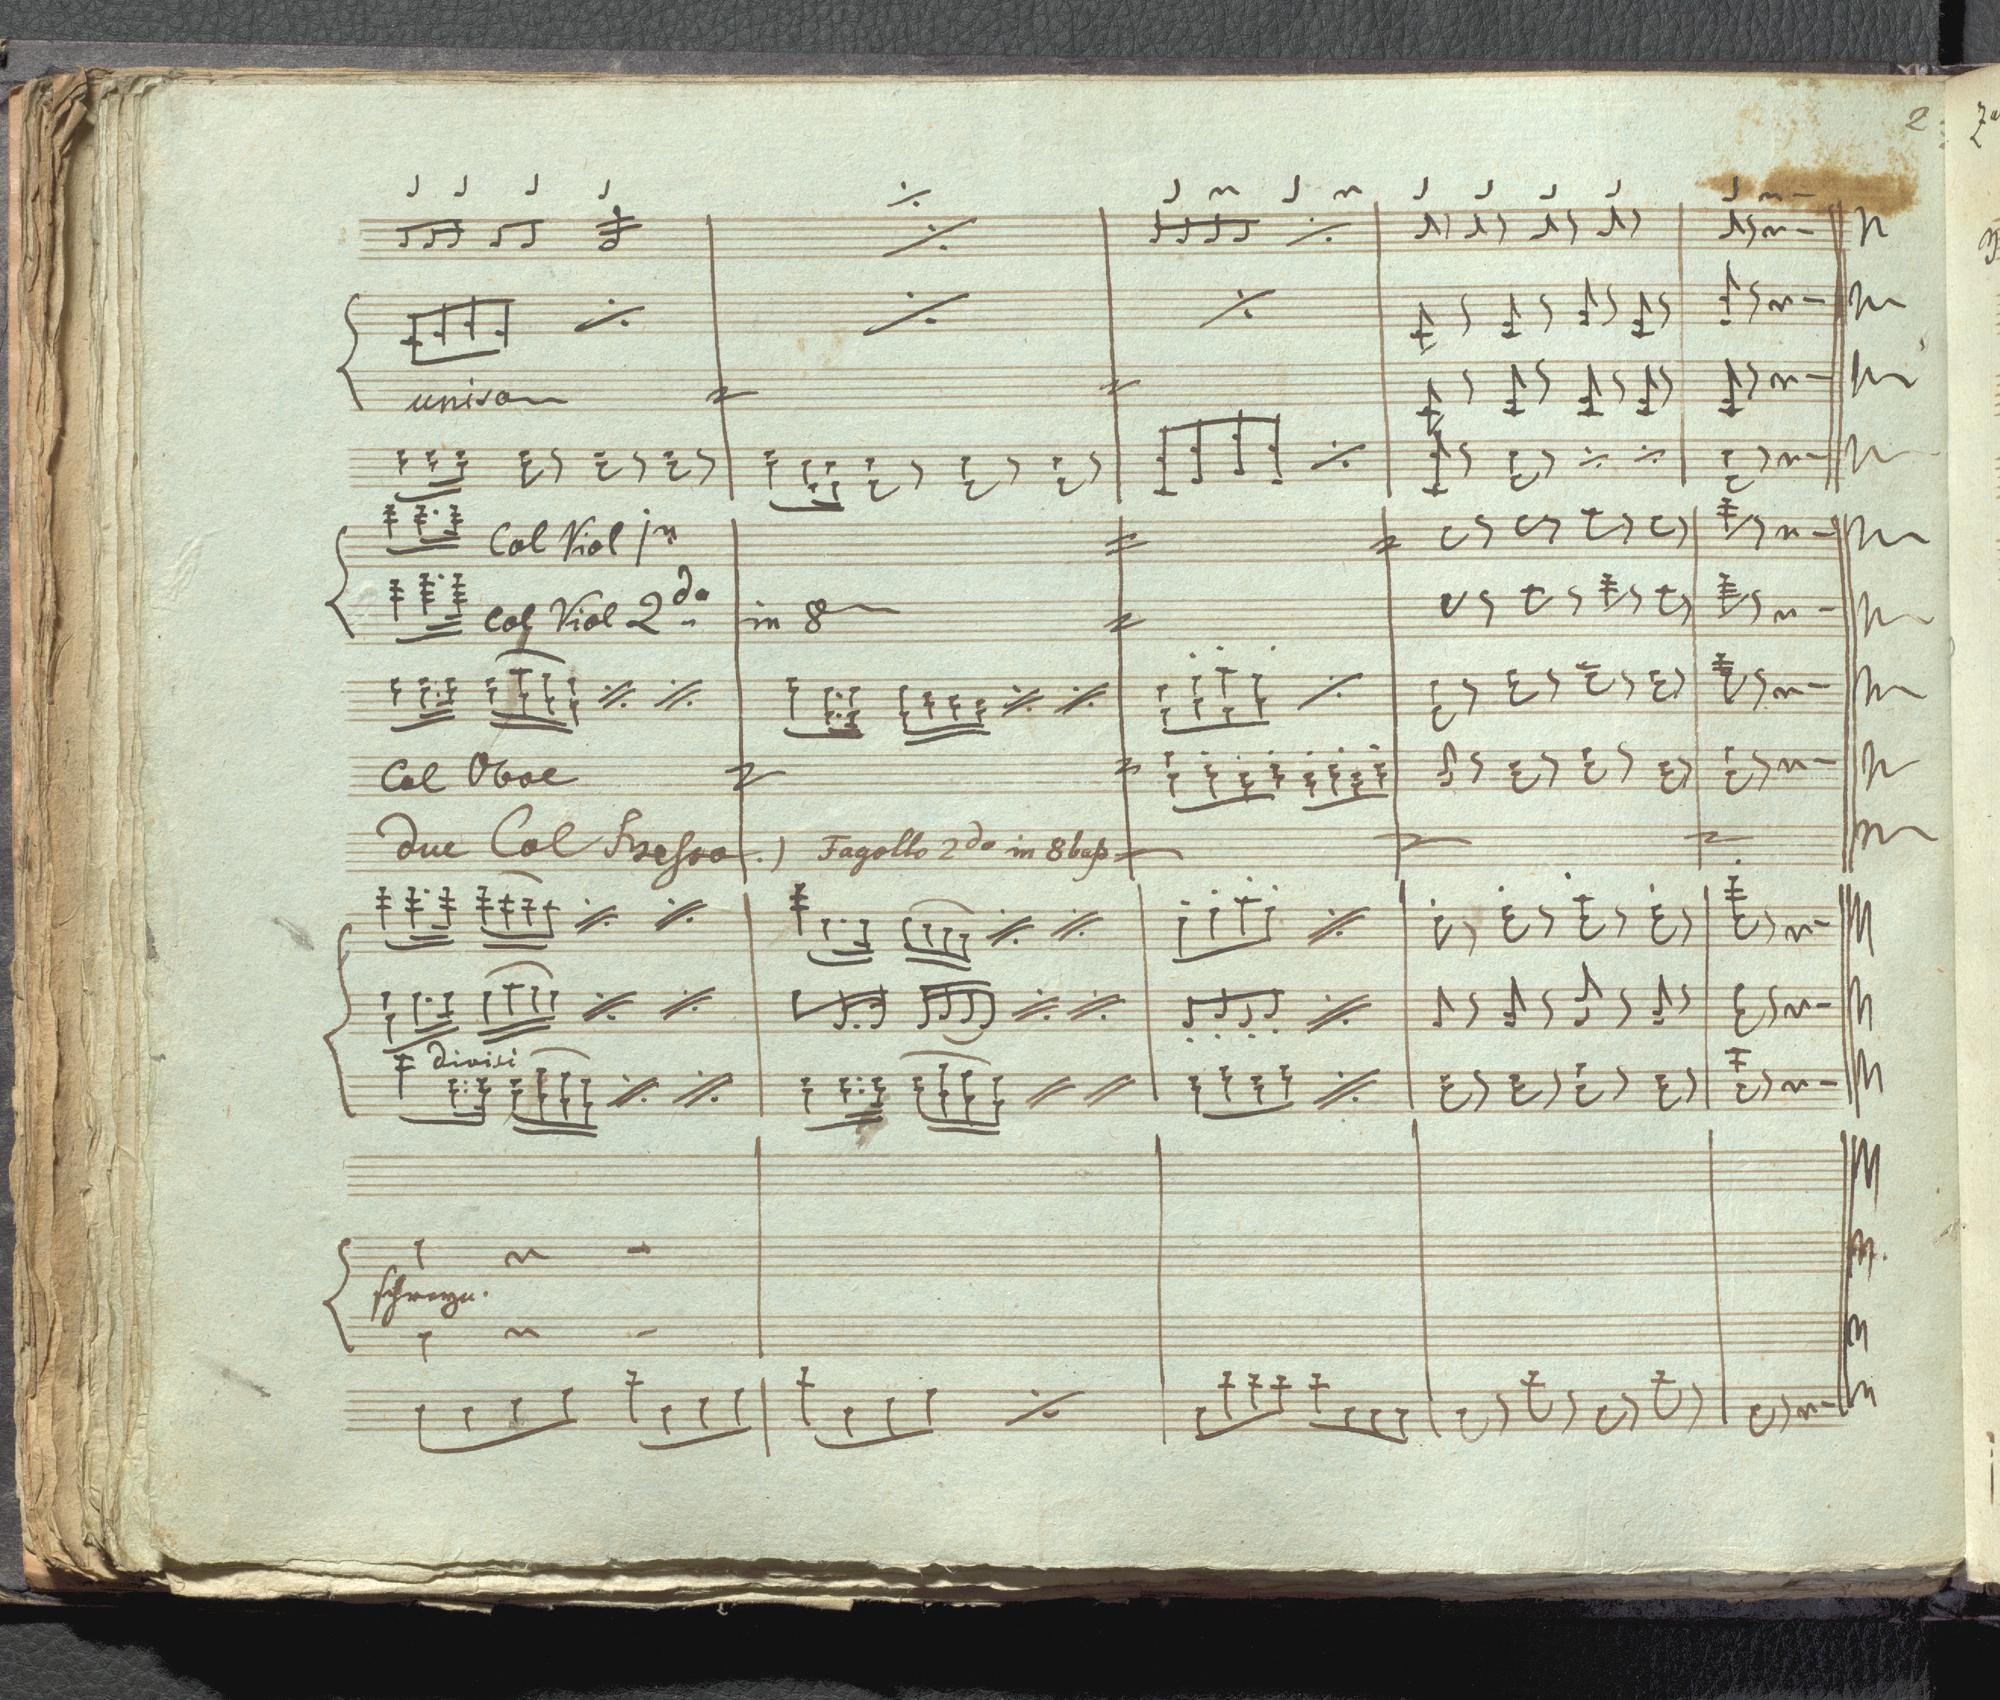 2
unison
Col Viol jn
Col Viol 2do in 8
Col Oboe
due Col Basso.) Fagotto 2do in 8baß
divisi